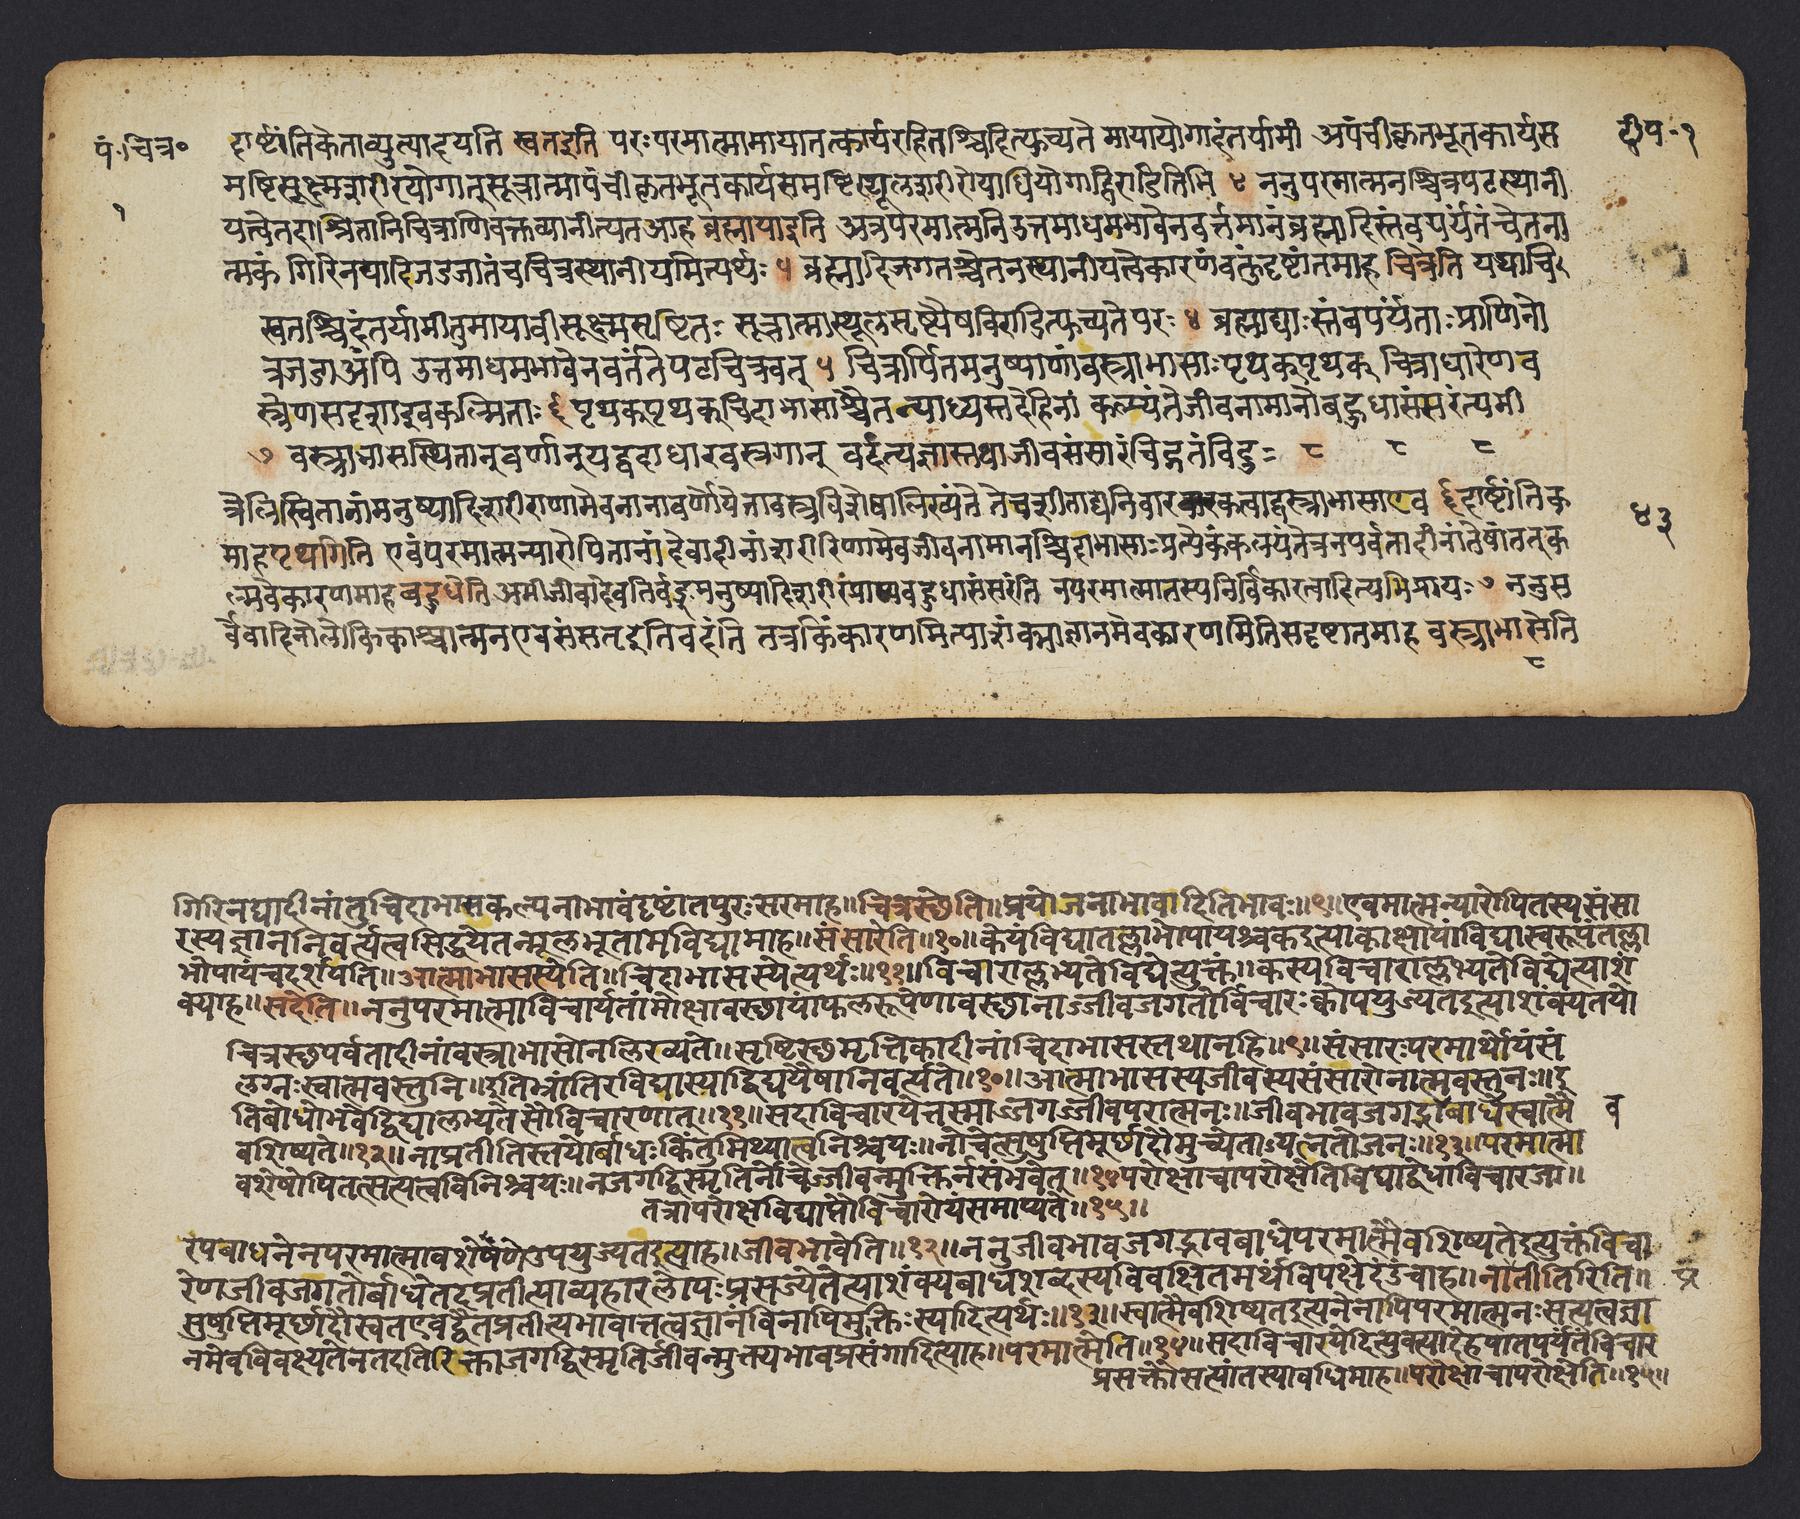 पं.चित्र॰
दार्ष्टांतिकेताव्युत्पादयति स्वतइति परःपरमात्मामायातत्कार्यरहितश्चिदित्युच्यते मायायोगादंतर्यामी अपंचीकृतभूतकार्यस
दीप-१
मष्टिसूक्ष्मशरीरयोगात्सूत्रात्मापंचीकृतभूतकार्यसमष्टिस्थूलशरीरोपाधियोगाद्विराडितिमि ४ ननुपरमात्मनश्चित्रपटस्थानी
१
यत्वेतदाश्रितानिचित्राणिवक्तव्यानीत्यतआह ब्रह्माद्याइति अत्रपरमात्मनिउत्तमाधमभावेनवर्त्तमानंब्रह्मादिस्तंबपर्यंतंचेतना
त्मकं गिरिनद्यादिजडजातंचचित्रस्थानीयमित्यर्थः ५ ब्रह्मादिजगतश्चेतनस्थानीयत्वेकारणंवक्तुंदृष्टांतमाह चित्रेति यद्याचि
स्वतश्चिदंतर्यामीतुमायावीसूक्ष्मसृष्टितः सूत्रात्मास्थूलसृष्ट्यैषविराडित्युच्यतेपरः ४ ब्रह्माद्याःस्तंबपर्यंताःप्राणिनो
त्रजडाअपि उत्तमाधमभावेनवर्ततेपटचित्रवत् ५ चित्रार्पितमनुष्याणांवस्त्राभासाःपृथक्पृथक् चित्राधारेणव
स्त्रेणसदृशाइवकल्पिताः ६ पृथक्पृथक्चिदाभासाश्चैतन्याध्यस्तदेहिनां कल्प्यंतेजीवनामानोबहुधासंसरंत्यमी
७ वस्त्राभासस्थितान्वर्णान्यद्वदाधारवस्त्रगान् वदंत्यज्ञास्तथाजीवसंसारंचिद्गतंविदुः ८ ८ ८
त्रेलिखितानांमनुष्यादिशरीराणामेवनानावर्णोपेतावस्त्रविशेषालिख्यंते तेचशीताद्यनिवारकत्वाद्वस्त्राभासाएव ६ दार्ष्टांतिक
४३
माहपृथगिति एवंपरमात्मन्यारोपितानां देवादीनांशरीरिणामेवजीवनामानश्चिदाभासाःप्रत्येकंकल्प्यंतेत्रनपर्वतादीनांतेषांतत्क
ल्पनेकारणमाहबहुधेति अमीजीवादेवतिर्यङ्मनुष्यादिशरीरंप्राप्यबहुधासंसरंति नपरमात्मातस्यनिर्विकारत्वादित्यभिप्रायः ७ ननुस
र्वेवादिनोलौकिकाश्चात्मनएवसंसतृइतिवदंति तत्रकिंकारणमित्याशंक्याज्ञानमेवकारणमितिसदृष्टांतमाह वस्त्राभासेति
८
गिरिनद्यादीनांतुचिदाभासकल्पनाभावंदृष्टांतपुरःसरमाह॥चित्रस्थेति॥प्रयोजनाभावादितिभावः॥९॥एवमात्मन्यारोपितस्यसंसा
रस्यज्ञाननिवर्त्यत्वसिद्धयेतन्मूलभूतामविद्यामाह॥संसारेति॥१०॥केयंविद्यातल्लाभोपायश्चकइत्याकांक्षायांविद्यास्वरूपंतल्ला
भोपायंचदर्शयति॥आत्माभासस्येति॥चिदाभासस्येत्यर्थः॥११॥विचाराल्लभ्यतेविद्येत्युक्तं॥कस्यविचाराल्लभ्यतेविद्येत्याशं
क्याह॥सदेति॥ननुपरमात्माविचार्यतांमोक्षावस्थायांफलरूपेणावस्थानाज्जीवजगतोर्विचारःक्वोपयुज्यतइत्याशंक्यतयो
चित्रस्थपर्वतादीनांवस्त्राभासोनलिख्यते॥सृष्टिस्थमृत्तिकादीनांचिदाभासस्तथानहि॥९॥संसारःपरमार्थोयंसं
लग्नःस्वात्मवस्तुनि॥इतिभ्रांतिरविद्यास्याद्विद्ययैषानिवर्त्यते॥१०॥आत्माभासस्यजीवस्यसंसारोनात्मवस्तुनः॥इ
तिबोधोभवेद्विद्यालभ्यतेसौविचारणात्॥११॥सदाविचारयेत्तस्माज्जगज्जीवपरात्मनः॥जीवभावजगद्भावबाधेस्वात्मै
व
वशिष्यते॥१२॥नाप्रतीतिस्तयोर्बाधःकिंतुमिथ्यात्वनिश्चयः॥नोचेत्सुषुप्तिमूर्छादौमुच्येतायत्नतोजनः॥१३॥परमात्मा
वशेषोपितत्सत्यत्वविनिश्चयः॥नजगद्विस्मृतिर्नोचेज्जीवन्मुक्तिर्नसंभवेत्॥१४परोक्षाचापरोक्षेतिविद्याद्वेधाविचारजा॥
तत्रापरोक्षविद्याप्तौविचारोयंसमाप्यते॥१५॥
रपबाधनेनपरमात्मावशेषणेउपयुज्यतइत्याह॥जीवभावेति॥१२॥ननुजीवभावजगद्भावबाधेपरमात्मैवशिष्यतेइत्युक्तंविचा
रेणजीवजगतोर्बाधेतदप्रतीत्याव्यहारलोपःप्रसज्येतेत्याशंक्यबाधशब्दस्यविवक्षितमर्थंविपक्षेदंडंचाह॥नातीतिरिति॥
प्र
सुषुप्तिमूर्छादौस्वतएवद्वैतप्रतीत्यभावात्तत्वज्ञानंविनापिमुक्तिःस्यादित्यर्थः॥१३॥स्वात्मैवशिष्यतइत्यनेनापिपरमात्मनःसत्यत्वज्ञा
नमेवविवक्ष्यतेनतदतिरिक्ताजगद्विस्मृतिर्जीवन्मुक्त्यभावप्रसंगादित्याह॥परमात्मेति॥१४॥सदाविचारयेदित्युक्त्यादेहपातपर्यंतंविचार
प्रसक्तौसत्यांतस्यावधिमाह॥परोक्षाचापरोक्षेति॥१५॥